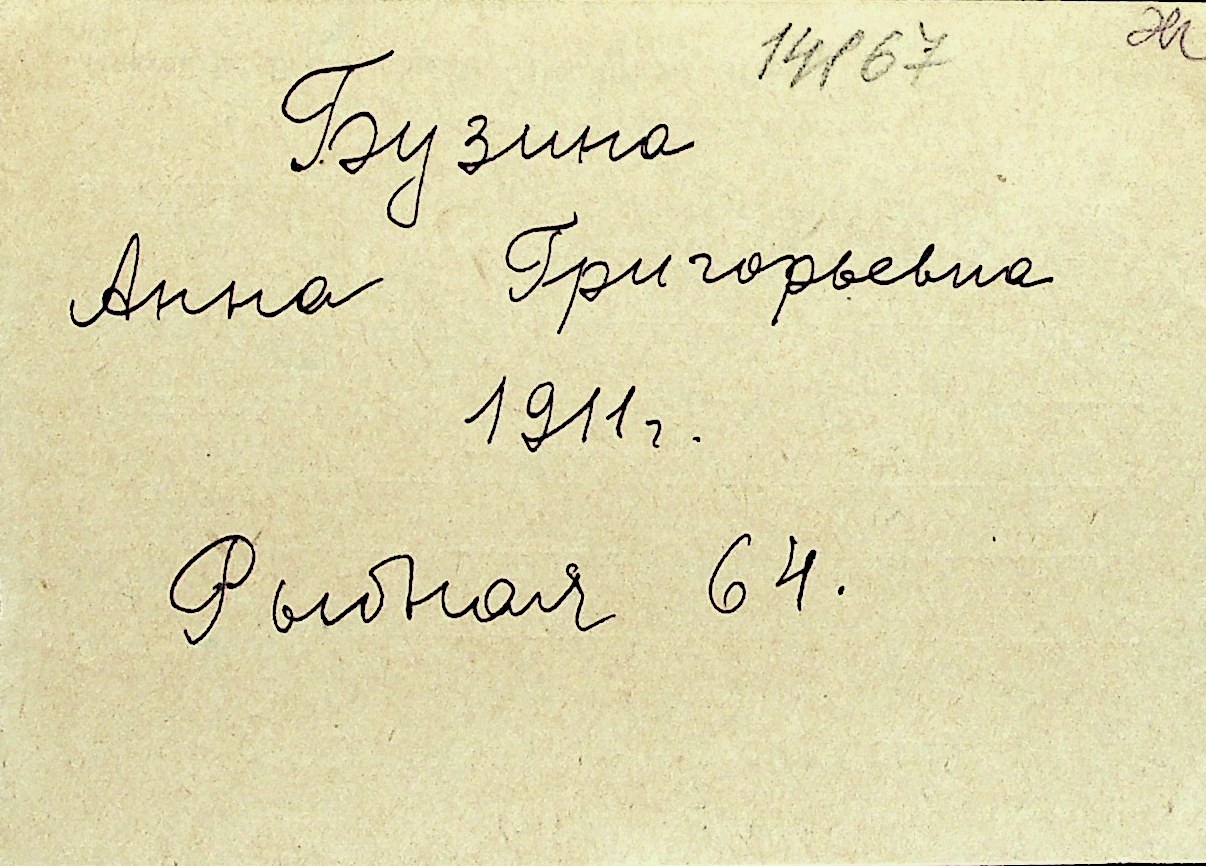 Бузина
Анна Григорьевна
1911г.
Рыбная 64.